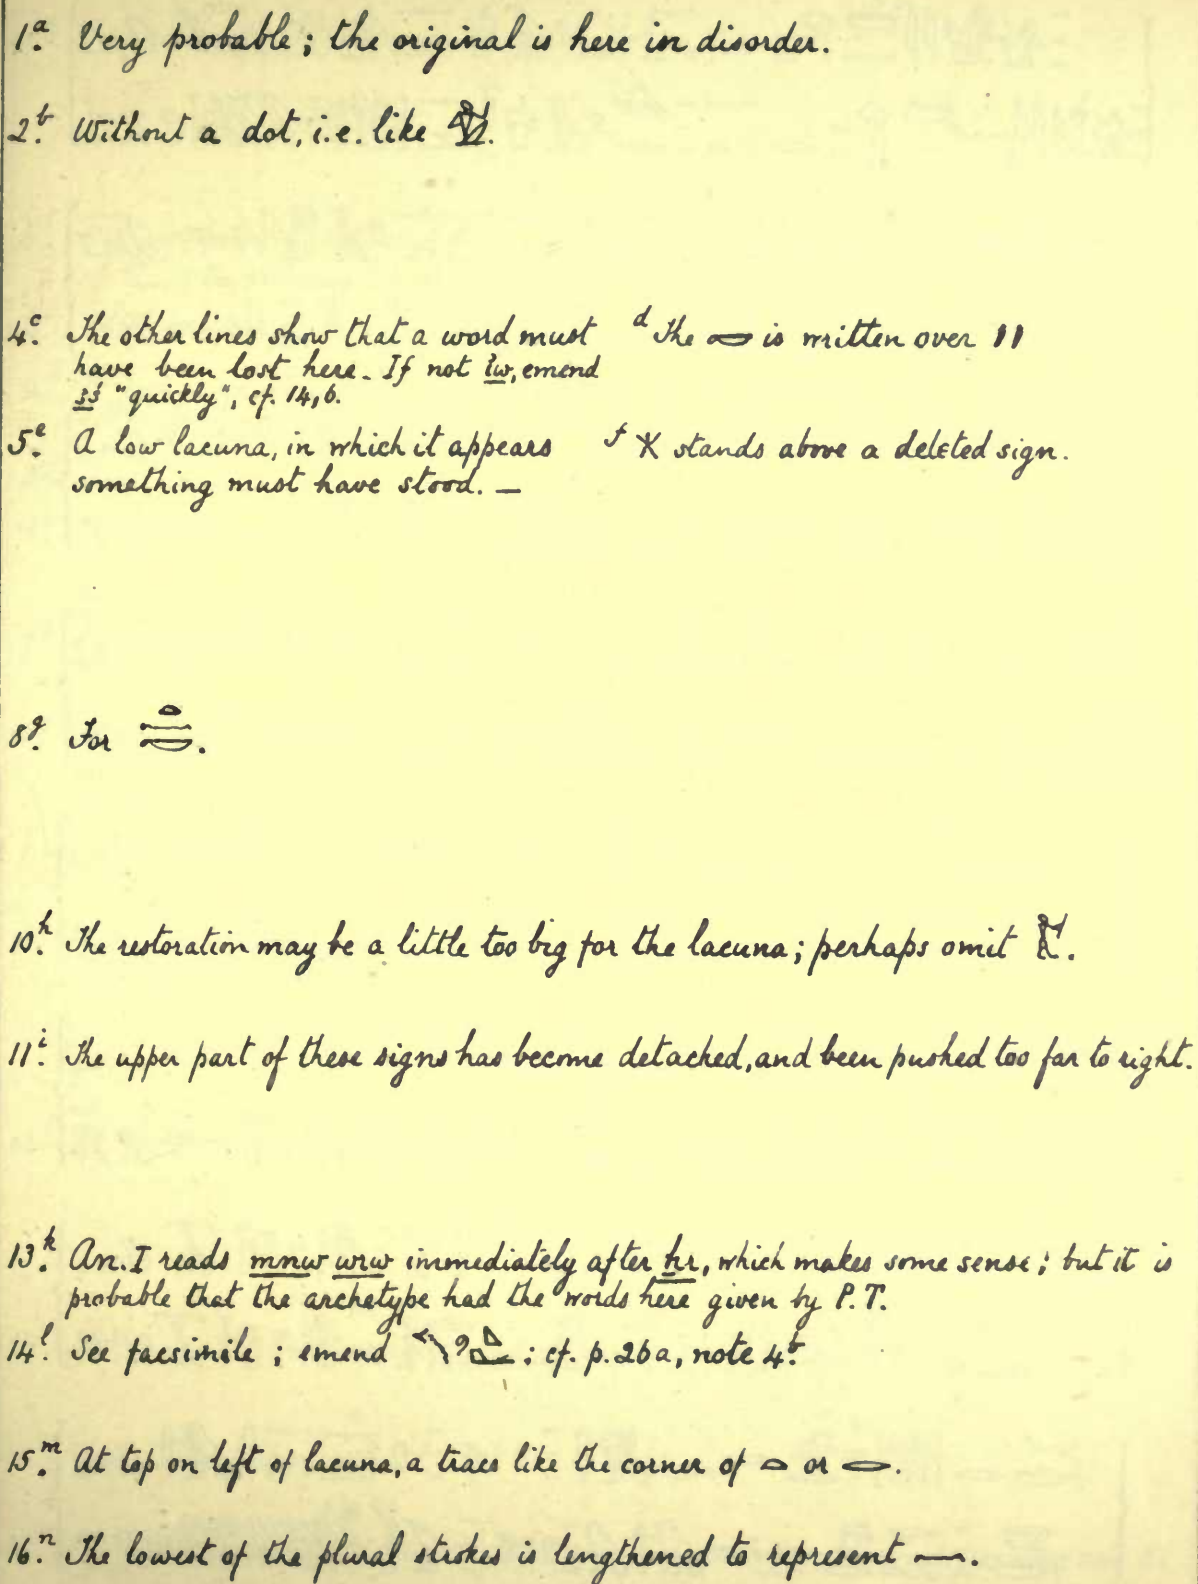 1.ᵃ Very probable; the original is here in disorder.
2.ᵇ Without a dot, i.e. like .
4.ᶜ The other lines show that a word must
have been lost here. If not ı͗w, emend
ꜣś "quickly", cf. 14,6.
ᵈ The 𓂋 is written over 𓏮
5.ᵉ A low lacuna, in which it appears
something must have stood. —
ᶠ 𓏴 stands above a deleted sign.
8.ᵍ For 𓏏𓈖𓎟.
10.ʰ The restoration may be a little too big for the lacuna; perhaps omit 𓀁.
11.ⁱ The upper part of these signs has become detached, and been pushed too far to right.
13.ᵏ An. I reads mnw wrw immediately after ḫr, which makes some sense; but it is
probable that the archetype had the words here given by P. T.
14.ˡ See facsimile; emend ; cf. p. 26a, note 4.ᵇ
15.ᵐ At top on left of lacuna, a trace like the corner of 𓏏 or 𓂋.
16.ⁿ The lowest of the plural strokes is lengthened to represent 𓈖.